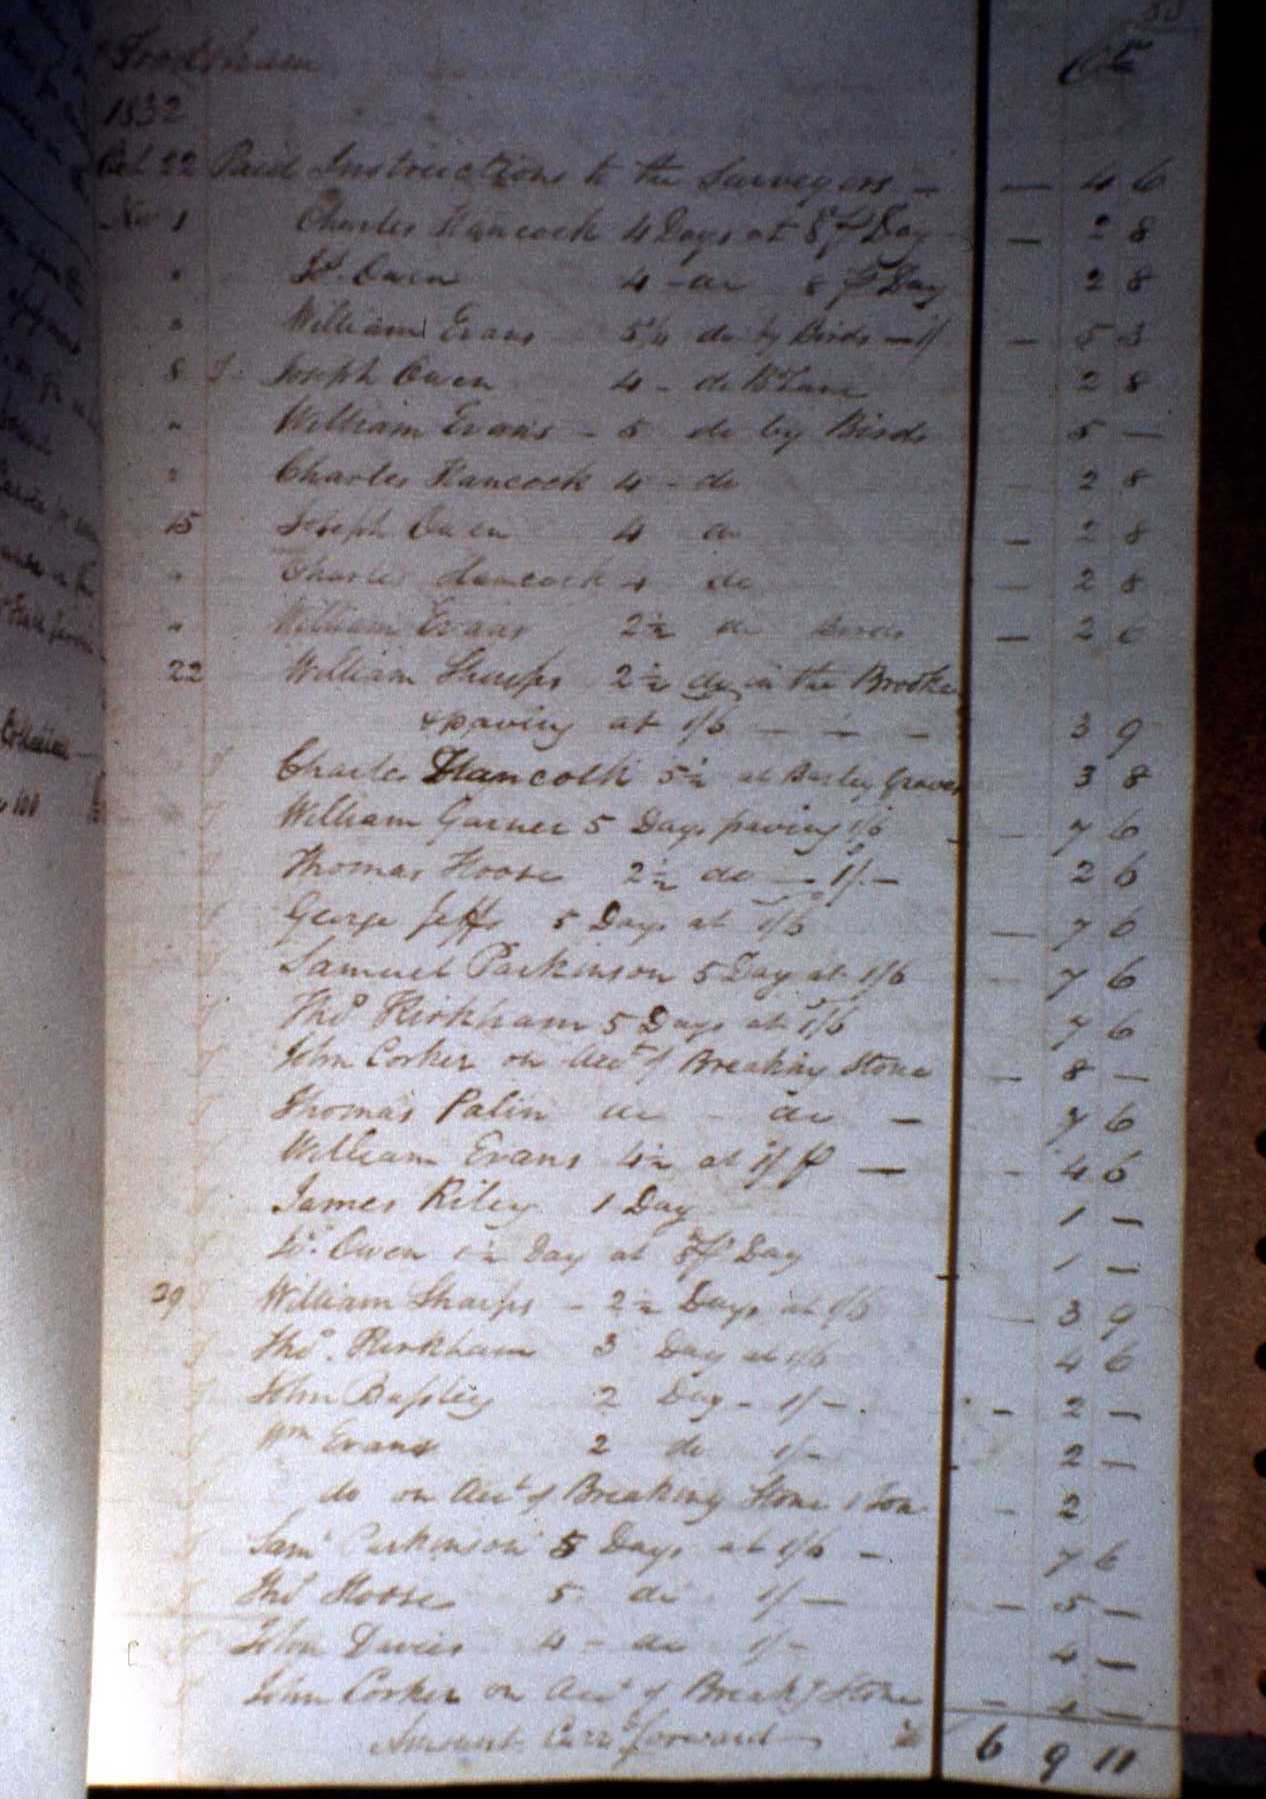 Frodsham Cr
1832
Oct 22 Paid Instructions to the Surveyors — — 4 6
Nov 1 Charles Hancock 4 Days at 8 pr Day — 2 8
" Jos. Owen 4 - do 8 pr Day 2 8
" William Evans 5¼ do by Birds — 1/ — 5 3
8 Joseph Owen 4 - do Lane 2 8
" William Evans - 5 do by Birds 5 —
" Charles Hancock 4 - do — 2 8
15 Joseph Owen 4 do — 2 8
" Charles Hancock 4 do — 2 8
" William Evans 2½ do Birds — 2 6
22 William Sharps 2½ do in the Brooke
& paving at 1/6 — — — 3 9
Charles Hancock 5½ at Barley Graves 3 8
William Garner 5 Days paving 1/6 — 7 6
Thomas Hoose 2½ do — 1/- — 2 6
George Jeffs 5 Days at 1/6 — 7 6
Samuel Parkinson 5 Day at 1/6 — 7 6
Thos Kirkham 5 Days at 1/6 7 6
John Corker on Acct of Breaking Stone — 8 —
Thomas Palin do - do — 7 6
William Evans 4½ at 1/ p — - 4 6
James Riley 1 Day 1 —
Jos. Owen 1½ Day at 8 pr Day 1 —
29 William Sharps - 2½ Days at 1/6 — 3 9
Thos. Kirkham 3 Day at 1/6 4 6
John 2 Day - 1/- . — 2 —
Wm Evans 2 do 1/- 2 —
do on Acct of Breaking Stone 1 Ton - 2
Saml Parkinson 5 Days at 1/6 — 7 6
Thos Hoose 5 do 1/- — 5 —
John Davies 4 - do 1/- 4 —
John Corker on Acct of Breakg Stone — 4 —
Amount Carrd forward 6 9 11